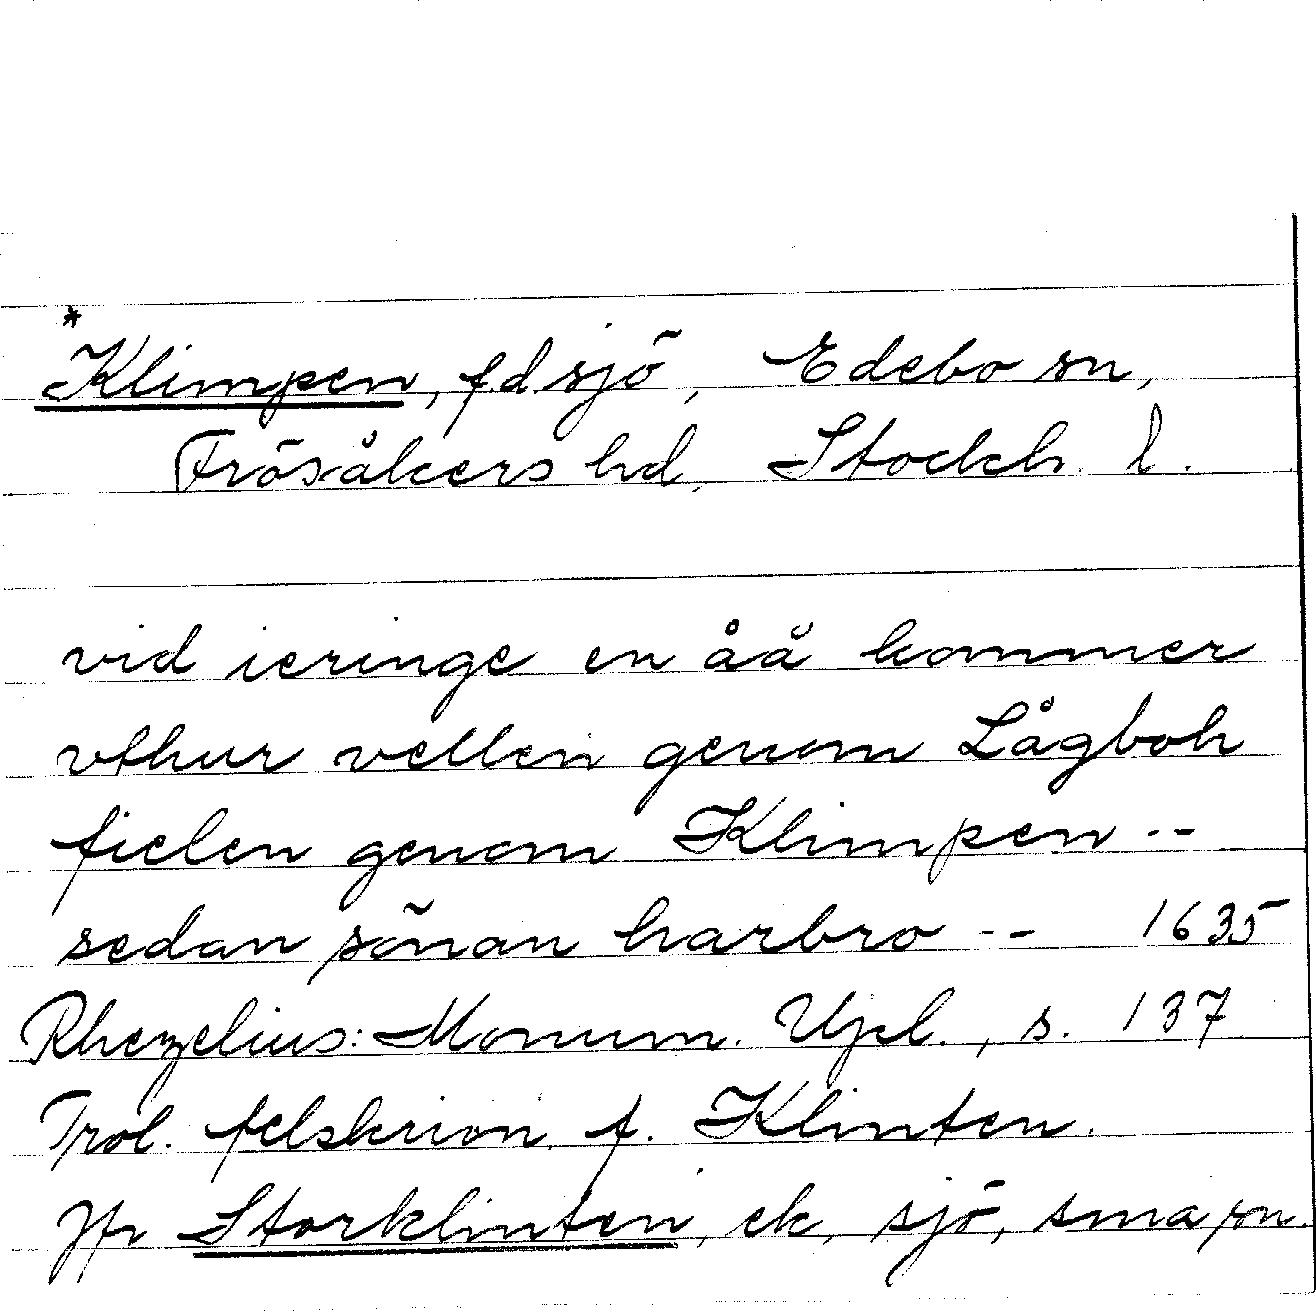 *
Klimpen, fd. sjö, Edebo sn,
Frösåkers hd, Stockh. l.
vid ieringe en åå kommer
vthur vellen genom Lågboh
fielen genom Klimpen --
sedan sönan harbro -- 1635
Rhezelius: Monum. Upl., s. 137
Trol. felskrivn. f. Klinten.
Jfr Storklinten, ek, sjö, sma sn.